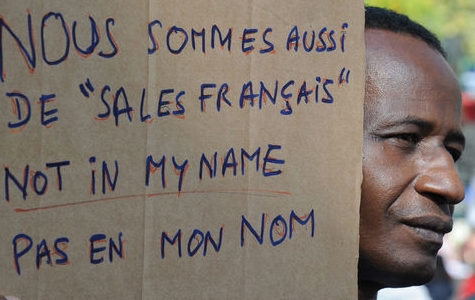 NOUS SOMMES AUSSI
DE "SALES FRANÇAIS"
NOT iN MY NAME
PAS EN MON NOM